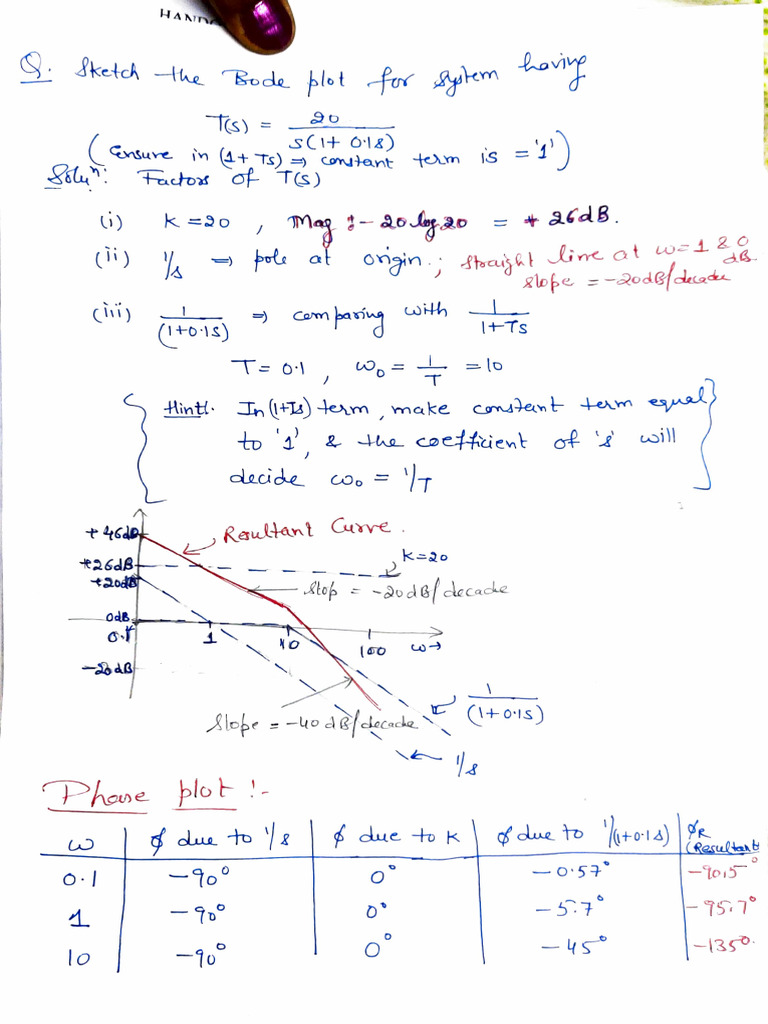 HAND
Q. Sketch the Bode plot for system having
T(s) = 20 / s(1+ 0.1s)
(Ensure in (1+Ts) ⇒ constant term is = '1')
Soluⁿ: Factors of T(s)
(i) K = 20 , Mag :- 20 log 20 = + 26dB.
(ii) 1/s ⇒ pole at origin.; straight line at ω=1 & 0 dB.
slope = -20dB/decade
(iii) 1/(1+0.1s) ⇒ comparing with 1/1+Ts
T = 0.1 , ω₀ = 1/T = 10
{ Hint!. In (1+Ts) term, make constant term equal
to '1', & the coefficient of 's' will
decide ω₀ = 1/T }
+46dB
Resultant Curve.
+26dB
K=20
+20dB
Slop = -20dB/decade
0dB
0.1 1 10 100 ω→
-20dB
1/(1+0.1s)
Slope = -40dB/decade
1/s
Phase plot :-
ω | ϕ due to 1/s | ϕ due to K | ϕ due to 1/(1+0.1s) | ϕR (Resultant
0.1 | -90° | 0° | -0.57° | -90.5°
1 | -90° | 0° | -5.7° | -95.7°
10 | -90° | 0° | -45° | -135°